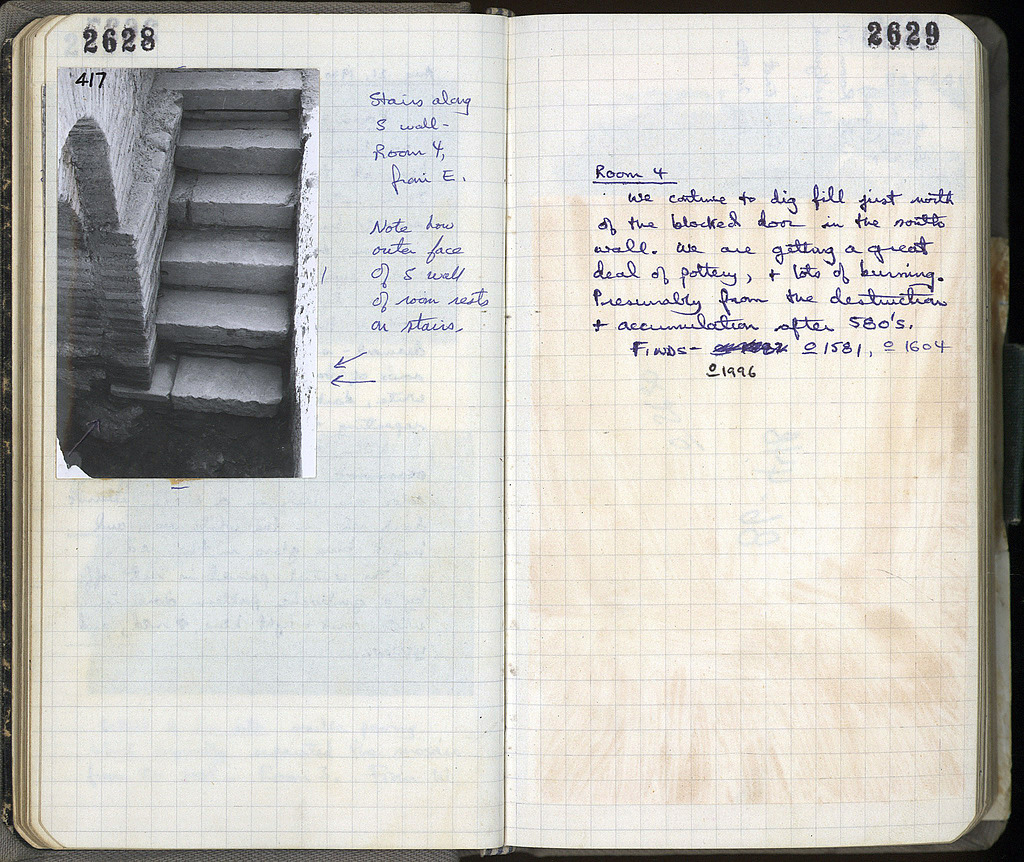 2628
417
Stairs along
S wall-
Room 4,
from E.
Note how
outer face
of S wall
of room rests
on stairs.
2629
Room 4
We continue to dig fill just north
of the blocked door in the south
wall. We are getting a great
deal of pottery, + lots of burning.
Presumably from the destruction
+ accumulation after 580's.
FINDS- o 1581, o 1604
o 1996